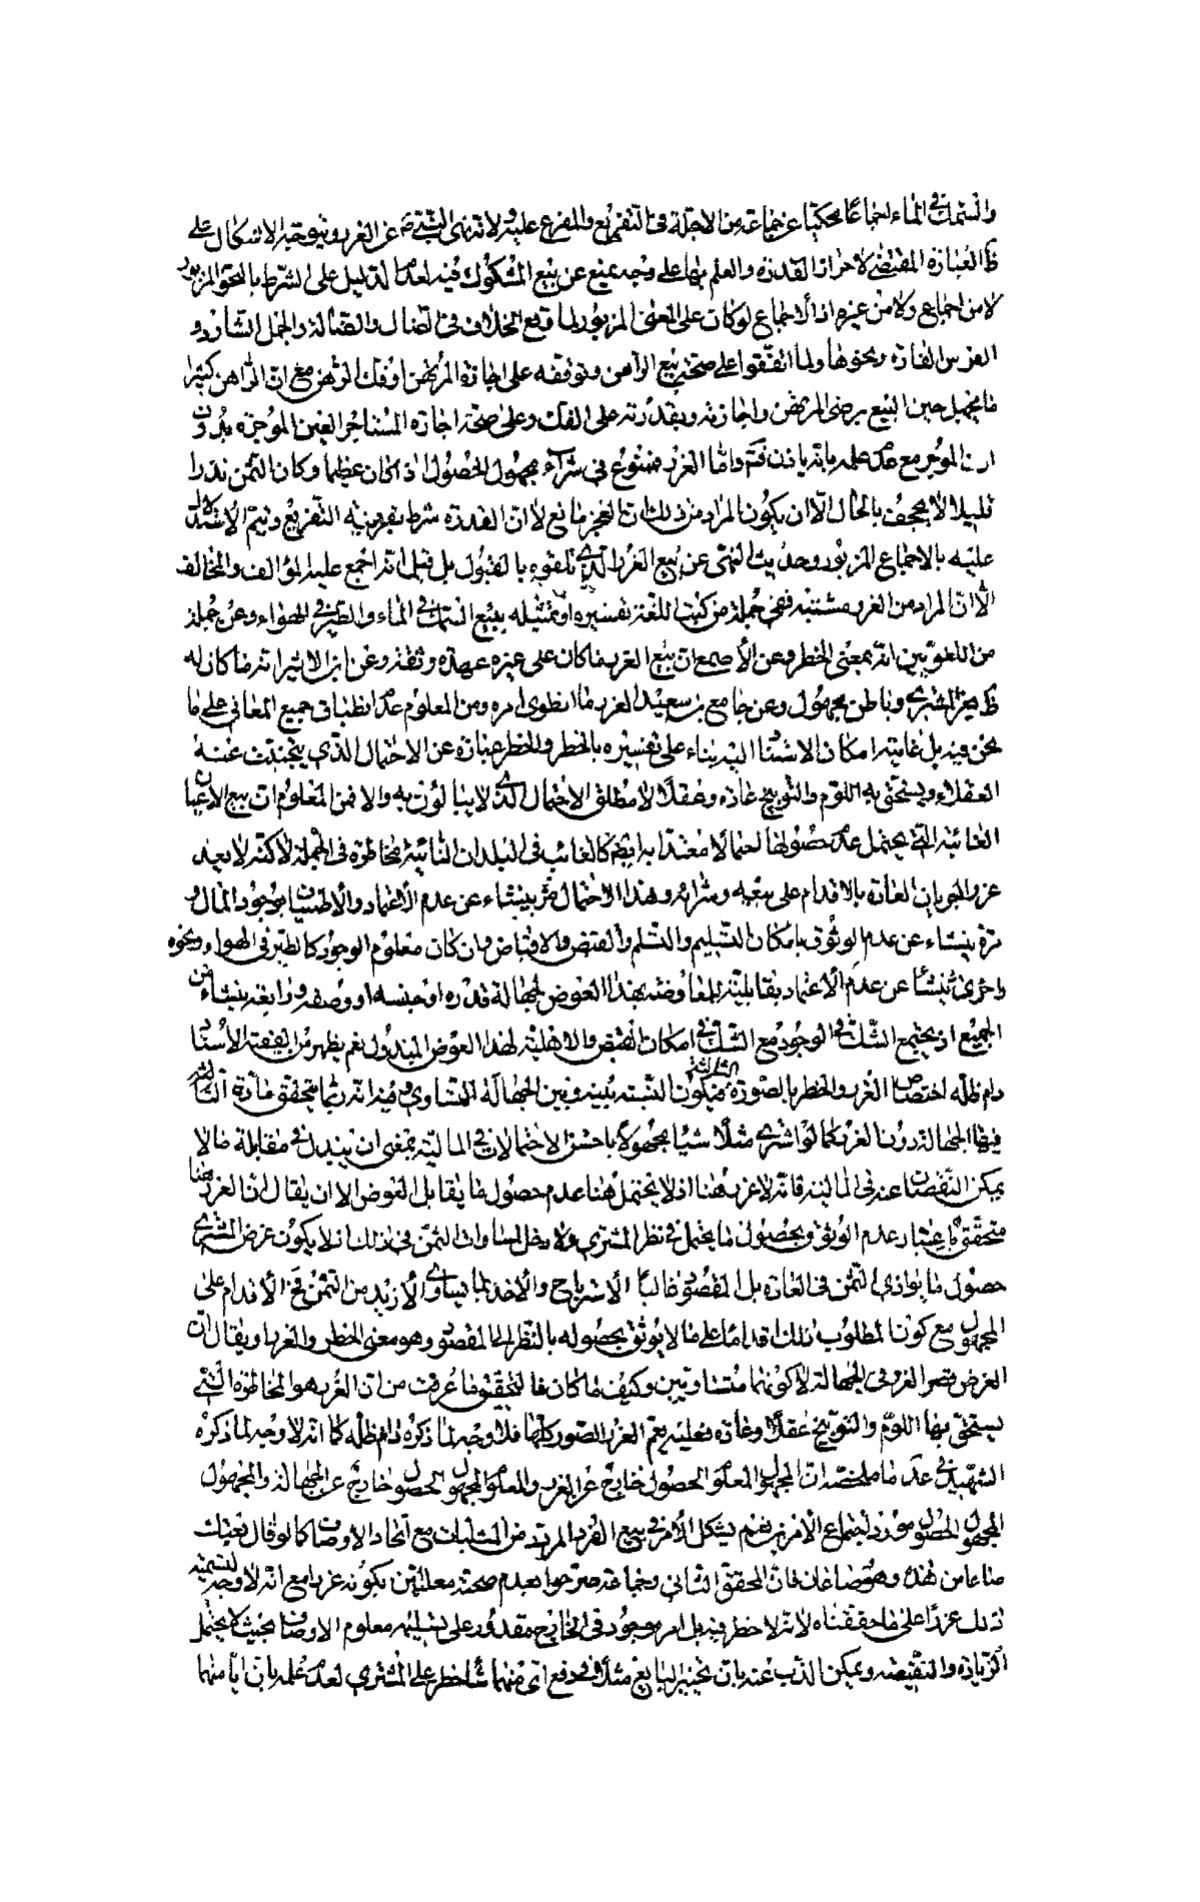 والسمك في الماء اجماعا محكيا عن جماعة من الاجلة في التفريع والمفرع عليه ولانه نهى النبي ص عن الغرر ويتوجه الاشكال على
ظ العبارة المقتضي لاحراز القدرة والعلم بها على وجه يمنع عن بيع المشكوك فيه لعدم الدليل على الشرط بالنحو المزبور
لا من اجماع ولا من غيره اذ الاجماع لو كان على المعنى المزبور لما وقع الخلاف في الضال والضالة والجمل الشارد و
الفرس العائرة ونحوها ولما اتفقوا على صحة بيع الراهن وتوقفه على اجازة المرتهن او فك الرهن مع ان الراهن كثيرا
ما يجهل حين البيع برضى المرتهن واجازته وبقدرته على الفك وعلى صحة اجارة المستاجر العين الموجرة بدون
اذن الموجر مع عدم علمه بانه ياذن واما الغرر فممنوع في شراء مجهول الحصول اذا كان عظيما وكان الثمن نذرا
قليلا لا يجحف بالحال الا ان يكون المراد من ذلك ان العجز مانع لا ان القدرة شرط بقرينة التفريع ويتم الاستدلال
عليه بالاجماع المزبور وحديث النهي عن بيع الغرر الذي تلقوه بالقبول بل قيل انه اجمع عليه المؤالف والمخالف
الا ان المراد من الغرر مشتبه ففي جملة من كتب اللغة تفسيره او تمثيله ببيع السمك في الماء والطير في الهواء وعن جملة
من اللغويين انه بمعنى الخطر وعن الاصمعي ان بيع الغرر ما كان على غير عهدة وثقة وعن ابن الاثير انه ما كان له
ظ يغر المشتري وباطن مجهول وعن جامع بن سعيد الغرر ما انطوى امره ومن المعلوم عدم انطباق جميع المعاني على ما
نحن فيه بل غايته امكان الاستناد اليه بناء على تفسيره بالخطر والخطر عبارة عن الاحتمال الذي يتجنب عنه
العقلاء ويستحق به اللوم والتوبيخ عادة وعقلا لا مطلق الاحتمال الذي لا يبالون به والا فمن المعلوم ان بيع الاعيان
الغائبة التي يحتمل عدم حصولها احتمالا معتدا به ايضا كالغائب في البلدان النائية مخاطرة في الجملة لا كثر لا بعيد
عن الجريان العادة بالاقدام على بيعه وشرائه وهذا الاحتمال مرة ينشاء عن عدم الاعتماد والاطمينان بوجود المال و
مرة ينشاء عن عدم الوثوق بامكان التسليم والتسلم والقبض والاقباض وان كان معلوم الوجود كالطير في الهواء ونحوه
واخرى تنشأ عن عدم الاعتماد بقابليته للمعاوضة بهذا العوض لجهالة قدره او جنسه او وصفه ورابعة ينشاء من
الجميع اذ يجتمع الشك في الوجود مع الشك في امكان القبض والاهلية لهذا العوض المبذول نعم يظهر من الفقيه الاستاد
دام ظله اختصاص الغرر والخطر بالصورة الثانية فيكون النسبة بينه وبين الجهالة التساوي وفيه انه ربما يتحقق مادة الثالثة
فيها الجهالة دون الغرر كما لو اشترى مثلا شيئا مجهولا باخس الاحتمالات في المالية بمعنى ان يبذل في مقابلة ما لا
يمكن النقصان عنه في المالية فانه لا غرر هنا اذ لا يحتمل هنا عدم حصول ما يقابل العوض الا ان يقال ان الغرر هنا
متحقق باعتبار عدم الوثوق بحصول ما يحتمل في نظر المشتري ولا دخل لمساوات الثمن في ذلك اذ لا يكون غرض المشتري
حصول ما يوازي الثمن في العادة بل المقصود غالبا الاسترباح والاخذ بما يساوي الازيد من الثمن فح الاقدام على
المجهول مع كون المطلوب ذلك اقداما على ما لا يوثق بحصوله بالنظر الى المقصود وهو معنى الخطر والغرر او يقال ان
الغرض قصر الغرر في الجهالة لا كونهما متساويين وكيف ما كان فالتحقيق ما عرفت من ان الغرر هو المخاطرة التي
يستحق بها اللوم والتوبيخ عقلا وعادة فعليه يعم الغرر الصور كلها فلا وجه لما ذكره دام ظله كما انه لا وجه لما ذكره
الشهيد في عد ما ملخصه ان المجهول المعلوم الحصول خارج عن الغرر والمعلوم المجهول الحصول خارج عن الجهالة والمجهول
المجهول الحصول مورد لاجتماع الامرين نعم يشكل الامر في بيع الفرد المردد من المثليات مع اتحاد الاوصاف كما لو قال بعتك
صاعا من هذا وهو صاعان فان المحقق الثاني وجماعة صرحوا بعدم صحته معللين بكونه غررا مع انه لا وجه لتسمية
ذلك غررا على ما حققناه لانه لا خطر فيه بل امر موجود في الخارج مقدور على تسليمه معلوم الاوصاف بحيث لا يحتمل
الزيادة والنقيصة ويمكن الذب عنه بان تخيير البايع مثلا في دفع اي منهما شاء خطر على المشتري لعدم علمه بان ايا منهما